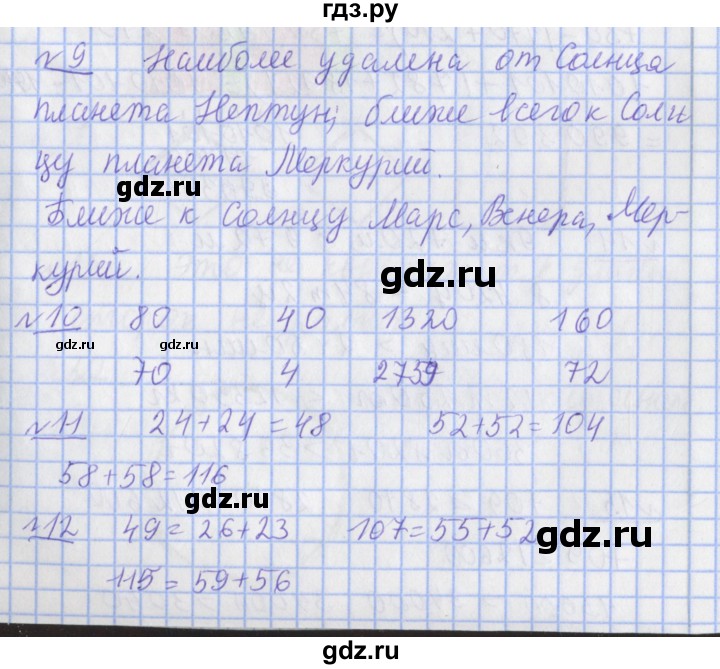 гдз.ру
№9 Наиболее удалена от Солнца
планета Нептун; ближе всего к Солн
цу планета Меркурий.
gdz.ru
Ближе к Солнцу Марс, Венера, Мер-
курий.
gdz.ru
№10 80 40 1320 160
gdz.ru gdz.ru
70 4 2759 72
№11 24+24=48 52+52=104
58+58=116
gdz.ru
№12 49=26+23 107=55+52
gdz.ru
115=59+56
gdz.ru
gdz.ru